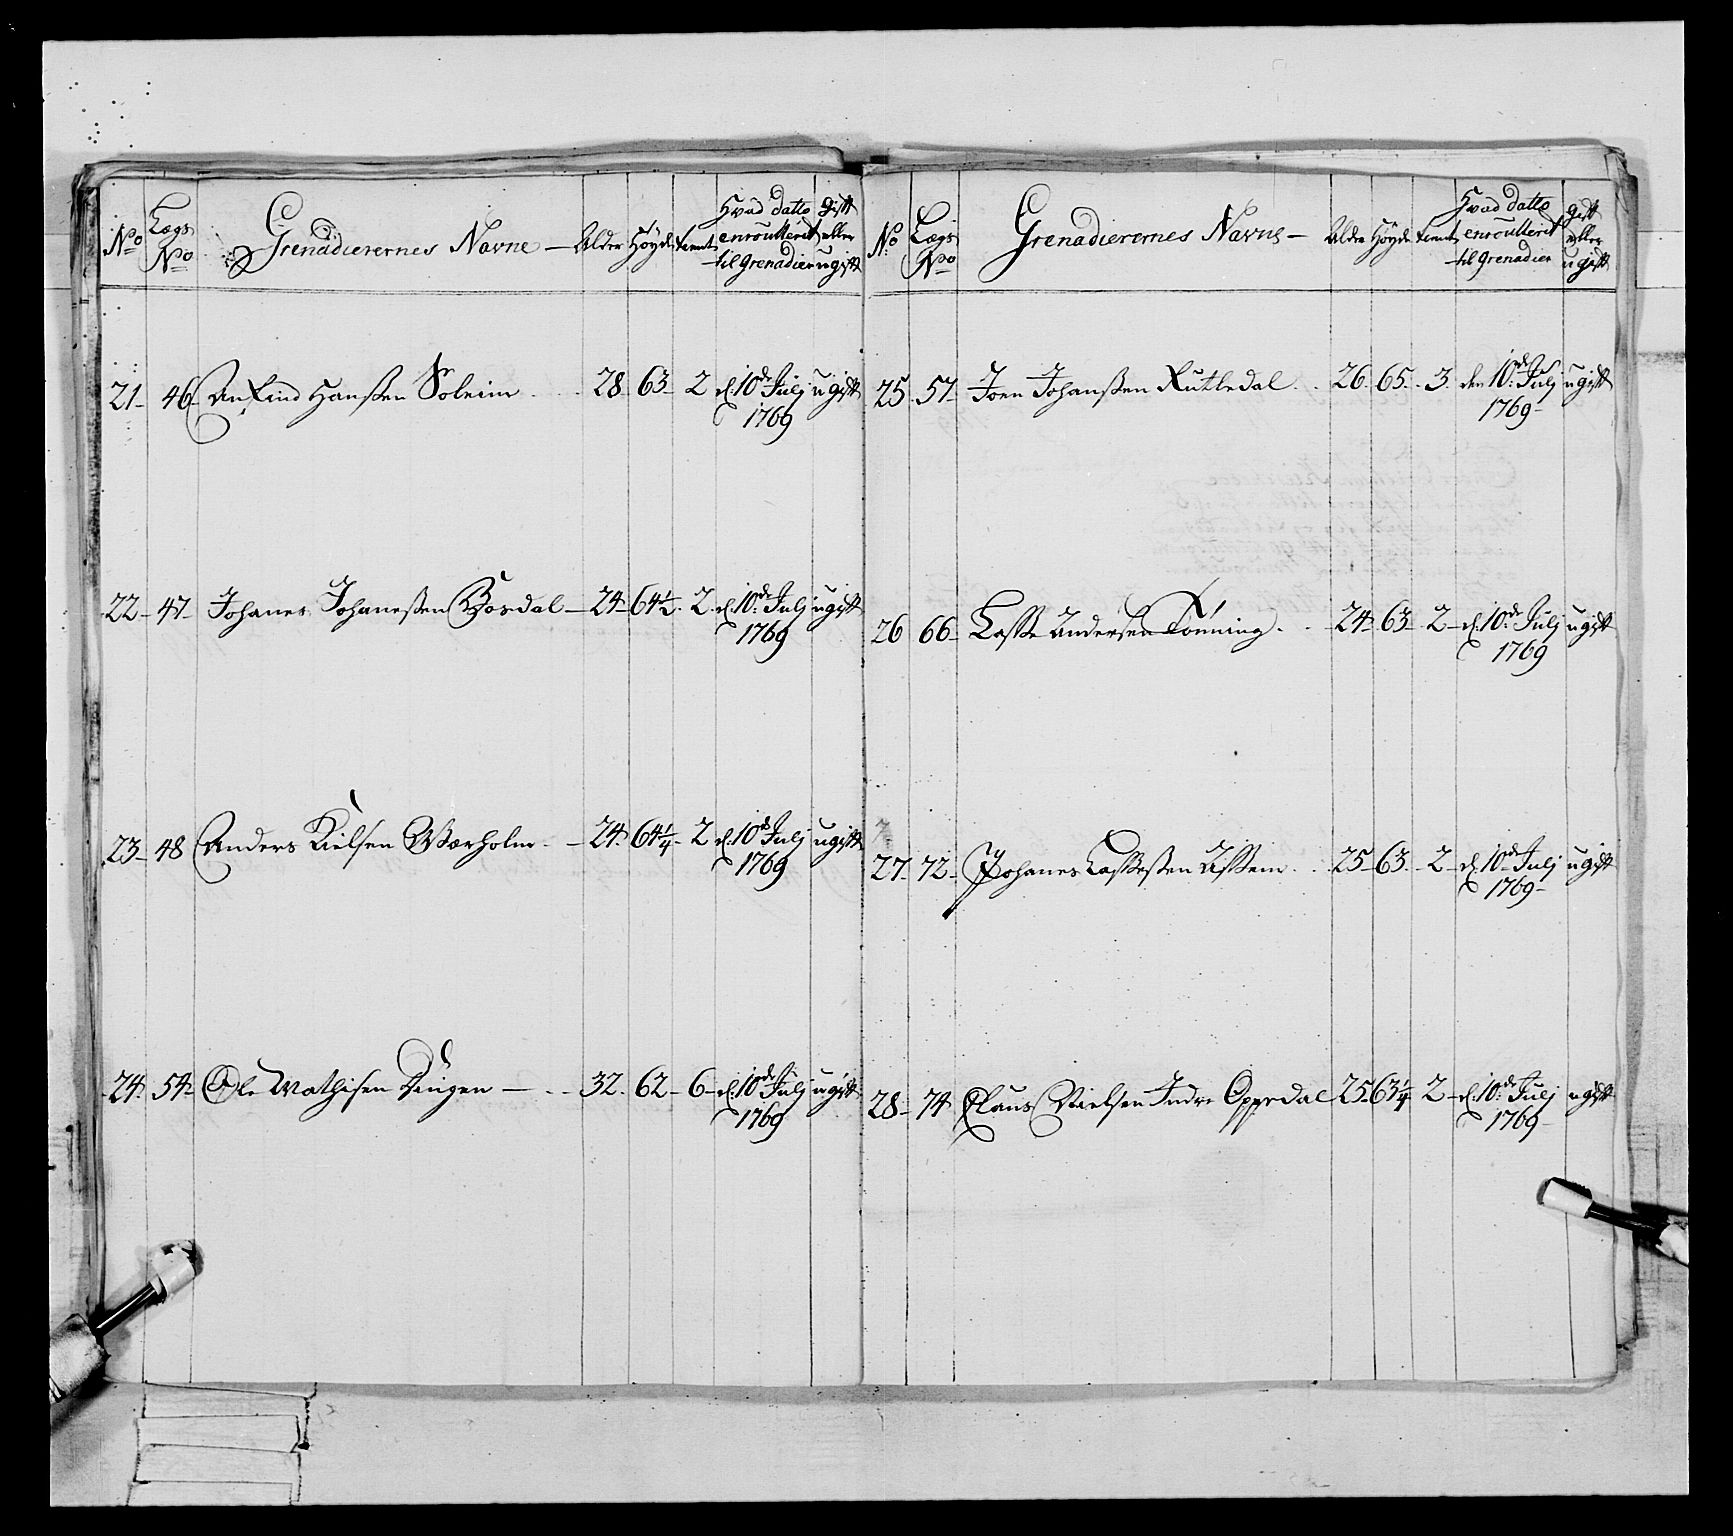 No Lægs No Grenadierernes Navne — Alder Höyde tient Hvad datto enroulleret til Grenadier gift eller ugift
21 46 Hanßen Soleim 28 63 2 d. 10de Julj 1769 ugift
22 47 Johanes Johaneßen Bordal 24 64½ 2 d. 10de Julj 1769 ugift
23 48 Anders Nielsen Wærholm 24 64¼ 2 d. 10de Julj 1769 ugift
24 54 Ole Mathisen 32 62 6 d. 10de Julj 1769 ugift
No Lægs No Grenadierernes Navne — Alder Höyde tient Hvad datto enroulleret til Grenadier gift eller ugift
25 57 Joen Johanßen Rutledal 26 65 3 den 10de Julj 1769 ugift
26 66 Laße Andersen Tönning 24 63 2 d. 10de Julj 1769 ugift
27 72 Johanes Laßeßen 25 63 2 d. 10de Julj 1769 ugift
28 74 Claus Nielsen Indre Oppedal 25 63¼ 2 d. 10de Julj 1769 ugift